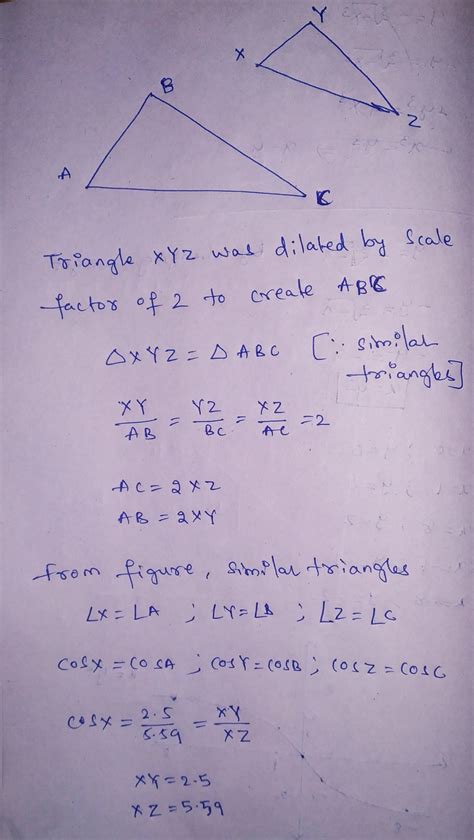 Y
X
Z
B
A
C
Triangle XYZ was dilated by scale
factor of 2 to create ABC
△XYZ = △ABC [∵ similar
triangles]
XY/AB = YZ/BC = XZ/AC = 2
AC = 2XZ
AB = 2XY
from figure, similar triangles
∠X = ∠A ; ∠Y = ∠B ; ∠Z = ∠C
cosX = cosA ; cosY = cosB ; cosZ = cosC
cosX = 2.5/5.59 = XY/XZ
XY = 2.5
XZ = 5.59